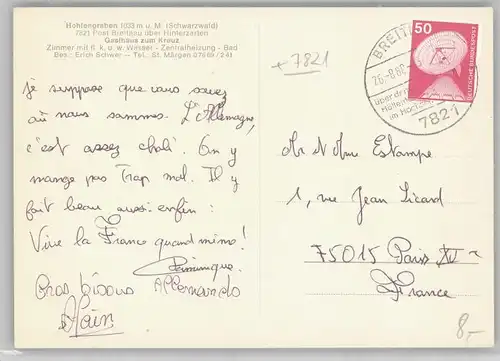 Hohlengraben 1033 m ü. M. (Schwarzwald)
7821 Post Breitnau über Hinterzarten
Gasthaus zum Kreuz
Zimmer mit fl. k. u. w. Wasser - Zentralheizung - Bad
Bes.: Erich Schwer - Tel.: St. Märgen 07669 / 241
+7821
BREIT
25.-8.80
über dem
Höllental
im Hochsch
7821
50
DEUTSCHE BUNDESPOST
je suppose que vous savez
où nous sommes. L'Allemagne,
c'est assez choli. On y
mange pas Trap mol. Il y
fait beau aussi enfin:
Vive la France quand mime!
Dominique.
Gros bisous Allemands
Alain
Mr et Mme Estampe
1, rue Jean Sicard
75015 Paris XVe
France
8,-